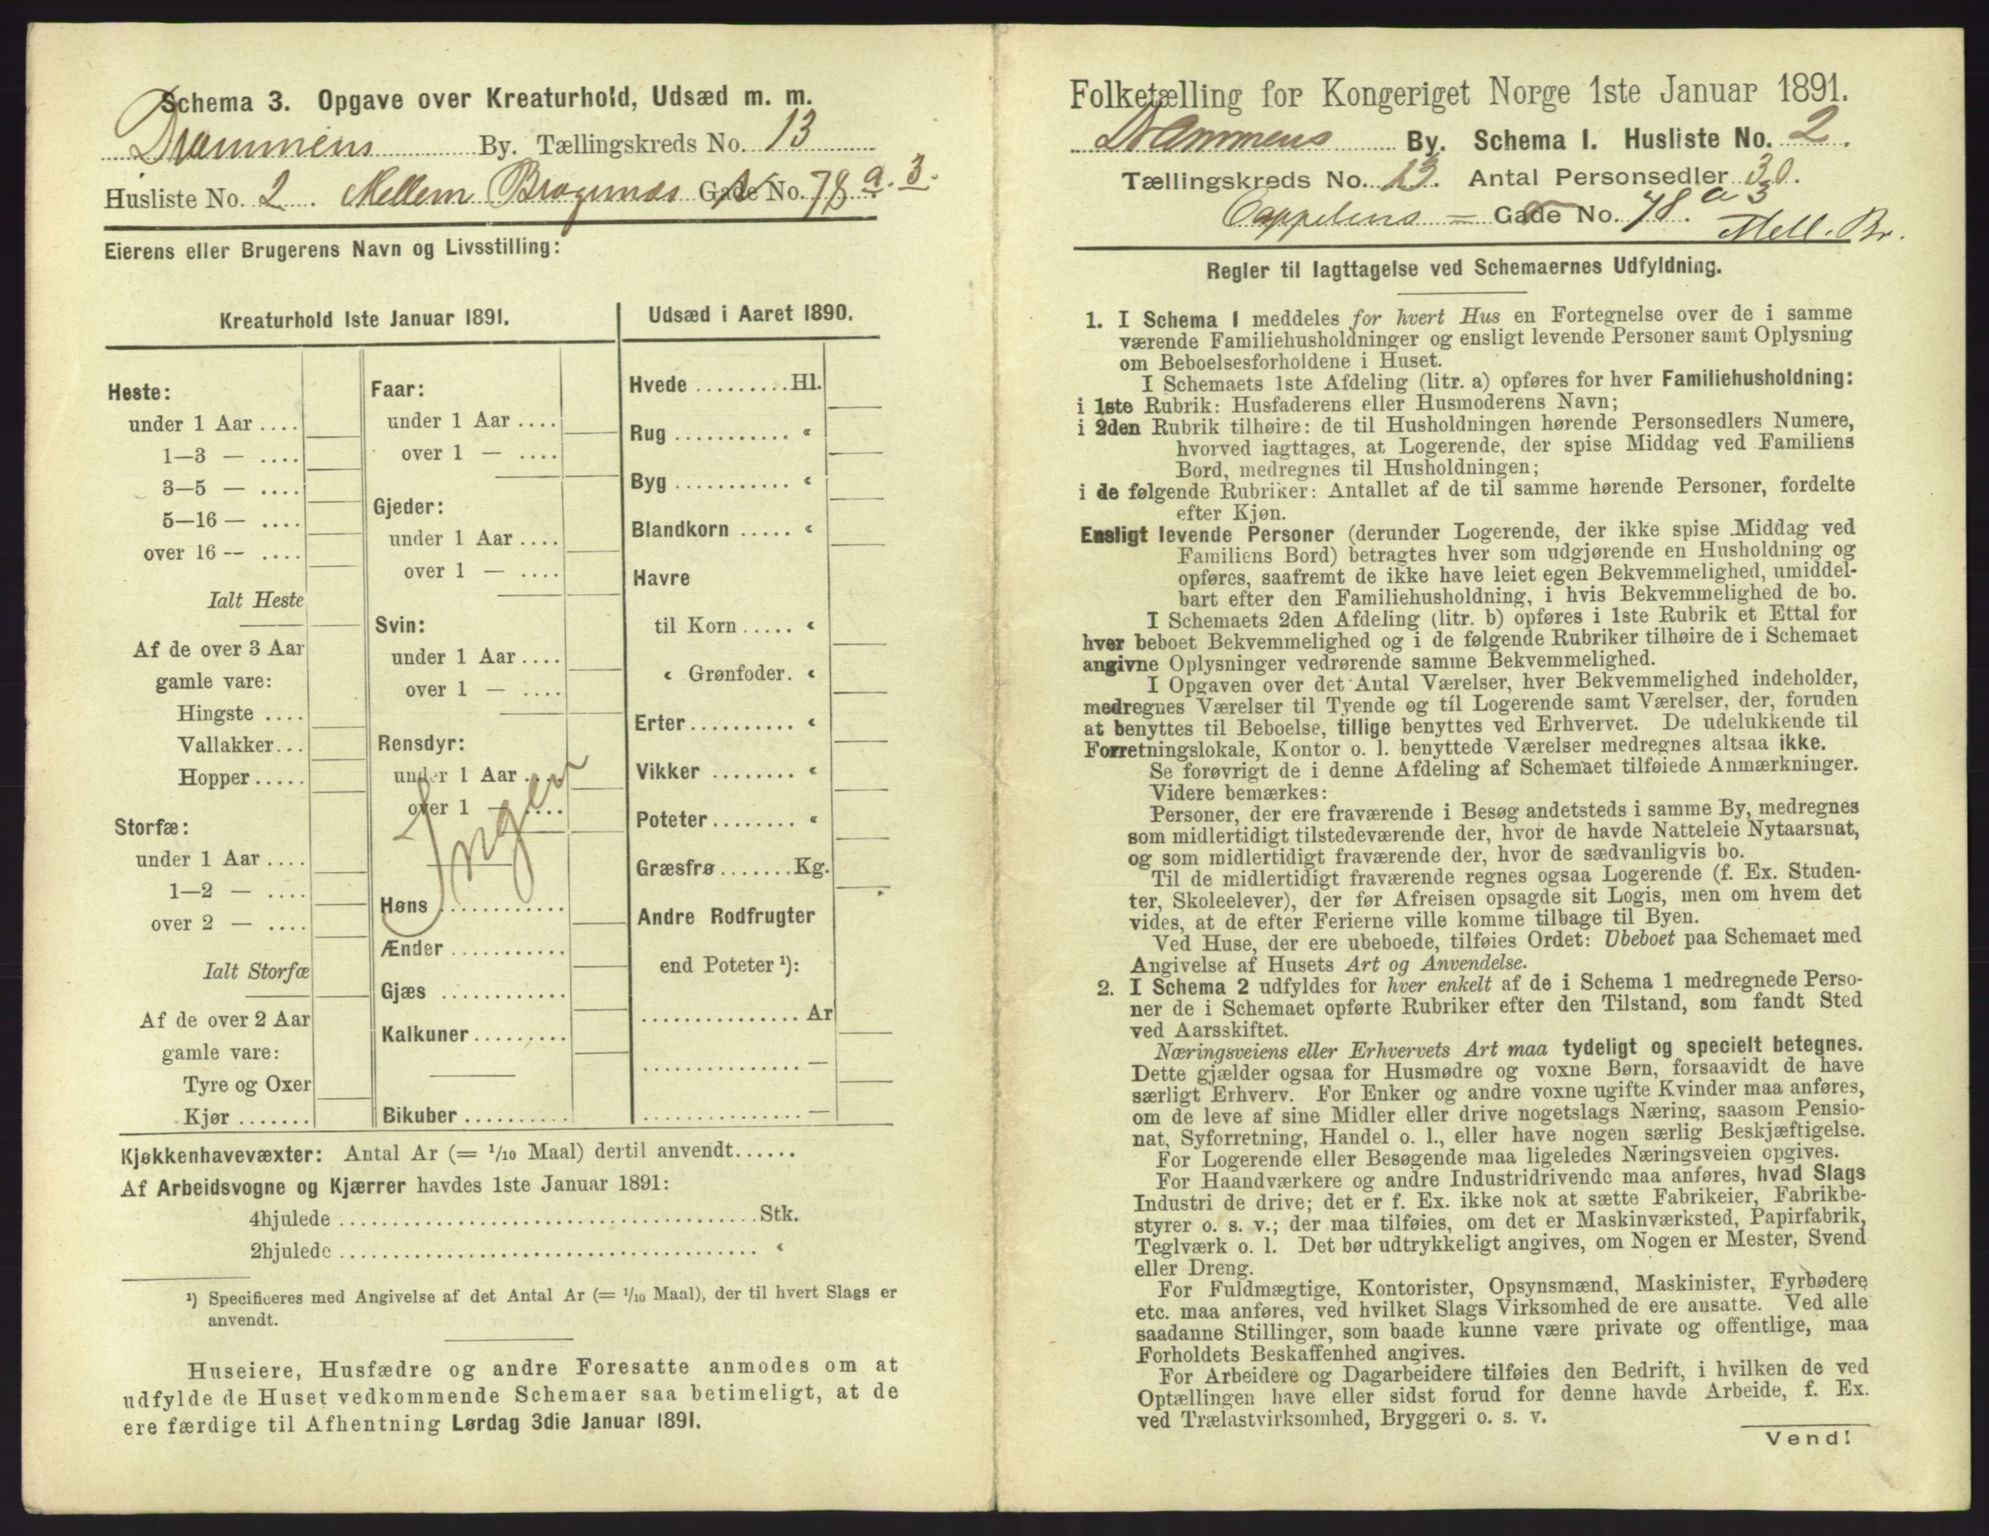 Schema 3. Opgave over Kreaturhold, Udsæd m. m.
Drammens By. Tællingskreds No. 13
Husliste No. 2. Mellem Bragernæs Gade No. 78 a. 3.
Eierens eller Brugerens Navn og Livsstilling:
Kreaturhold 1ste Januar 1891.
Heste:
under 1 Aar ....
1—3 — ....
3—5 — ....
5—16 — ....
over 16 — ....
Ialt Heste
Af de over 3 Aar
gamle vare:
Hingste ....
Vallakker...
Hopper.....
Storfæ:
under 1 Aar ....
1—2 — ....
over 2 — ....
Ialt Storfæ
Af de over 2 Aar
gamle vare:
Tyre og Oxer
Kjør .......
Faar:
under 1 Aar ....
over 1 — ....
Gjeder:
under 1 Aar ....
over 1 — ....
Svin:
under 1 Aar ....
over 1 — ....
Rensdyr:
under 1 Aar ....
over 1 — ....
Ingen
Høns ............
Ænder ...........
Gjæs ............
Kalkuner.........
Bikuber ..........
Udsæd i Aaret 1890.
Hvede .........Hl.
Rug ........... “
Byg ........... “
Blandkorn ..... “
Havre
til Korn ..... “
“ Grønfoder. “
Erter.......... “
Vikker ........ “
Poteter........ “
Græsfrø .......Kg.
Andre Rodfrugter
end Poteter ¹):
............... Ar
............... —
............... —
Kjøkkenhavevæxter: Antal Ar (= 1/10 Maal) dertil anvendt......
Af Arbeidsvogne og Kjærrer havdes 1ste Januar 1891:
4hjulede ......................................Stk.
2hjulede ...................................... “
¹) Specificeres med Angivelse af det Antal Ar (= 1/10 Maal), der til hvert Slags er
anvendt.
Huseiere, Husfædre og andre Foresatte anmodes om at
udfylde de Huset vedkommende Schemaer saa betimeligt, at de
ere færdige til Afhentning Lørdag 3die Januar 1891.
Folketælling for Kongeriget Norge 1ste Januar 1891.
Drammens By. Schema I. Husliste No. 2.
Tællingskreds No. 13. Antal Personsedler 30.
Cappelens = Gade No. 78. a 3
Mell. Br.
Regler til Iagttagelse ved Schemaernes Udfyldning.
1. I Schema 1 meddeles for hvert Hus en Fortegnelse over de i samme
værende Familiehusholdninger og ensligt levende Personer samt Oplysning
om Beboelsesforholdene i Huset.
I Schemaets 1ste Afdeling (litr. a) opføres for hver Familiehusholdning:
i 1ste Rubrik: Husfaderens eller Husmoderens Navn;
i 2den Rubrik tilhøire: de til Husholdningen hørende Personsedlers Numere,
hvorved iagttages, at Logerende, der spise Middag ved Familiens
Bord, medregnes til Husholdningen;
i de følgende Rubriker: Antallet af de til samme hørende Personer, fordelte
efter Kjøn.
Ensligt levende Personer (derunder Logerende, der ikke spise Middag ved
Familiens Bord) betragtes hver som udgjørende en Husholdning og
opføres, saafremt de ikke have leiet egen Bekvemmelighed, umiddel-
bart efter den Familiehusholdning, i hvis Bekvemmelighed de bo.
I Schemaets 2den Afdeling (litr. b) opføres i 1ste Rubrik et Ettal for
hver beboet Bekvemmelighed og i de følgende Rubriker tilhøire de i Schemaet
angivne Oplysninger vedrørende samme Bekvemmelighed.
I Opgaven over det Antal Værelser, hver Bekvemmelighed indeholder,
medregnes Værelser til Tyende og til Logerende samt Værelser, der, foruden
at benyttes til Beboelse, tillige benyttes ved Erhvervet. De udelukkende til
Forretningslokale, Kontor o. l. benyttede Værelser medregnes altsaa ikke.
Se forøvrigt de i denne Afdeling af Schemaet tilføiede Anmærkninger.
Videre bemærkes:
Personer, der ere fraværende i Besøg andetsteds i samme By, medregnes
som midlertidigt tilstedeværende der, hvor de havde Natteleie Nytaarsnat,
og som midlertidigt fraværende der, hvor de sædvanligvis bo.
Til de midlertidigt fraværende regnes ogsaa Logerende (f. Ex. Studen-
ter, Skoleelever), der før Afreisen opsagde sit Logis, men om hvem det
vides, at de efter Ferierne ville komme tilbage til Byen.
Ved Huse, der ere ubeboede, tilføies Ordet: Ubeboet paa Schemaet med
Angivelse af Husets Art og Anvendelse.
2. I Schema 2 udfyldes for hver enkelt af de i Schema 1 medregnede Perso-
ner de i Schemaet opførte Rubriker efter den Tilstand, som fandt Sted
ved Aarsskiftet.
Næringsveiens eller Erhvervets Art maa tydeligt og specielt betegnes.
Dette gjælder ogsaa for Husmødre og voxne Børn, forsaavidt de have
særligt Erhverv. For Enker og andre voxne ugifte Kvinder maa anføres,
om de leve af sine Midler eller drive nogetslags Næring, saasom Pensio-
nat, Syforretning, Handel o. l., eller have nogen særlig Beskjæftigelse.
For Logerende eller Besøgende maa ligeledes Næringsveien opgives.
For Haandværkere og andre Industridrivende maa anføres, hvad Slags
Industri de drive; det er f. Ex. ikke nok at sætte Fabrikeier, Fabrikbe-
styrer o. s. v.; der maa tilføies, om det er Maskinværksted, Papirfabrik,
Teglværk o. l. Det bør udtrykkeligt angives, om Nogen er Mester, Svend
eller Dreng.
For Fuldmægtige, Kontorister, Opsynsmænd, Maskinister, Fyrbødere
etc. maa anføres, ved hvilket Slags Virksomhed de ere ansatte. Ved alle
saadanne Stillinger, som baade kunne være private og offentlige, maa
Forholdets Beskaffenhed angives.
For Arbeidere og Dagarbeidere tilføies den Bedrift, i hvilken de ved
Optællingen have eller sidst forud for denne havde Arbeide, f. Ex.
ved Trælastvirksomhed, Bryggeri o. s. v.
Vend!